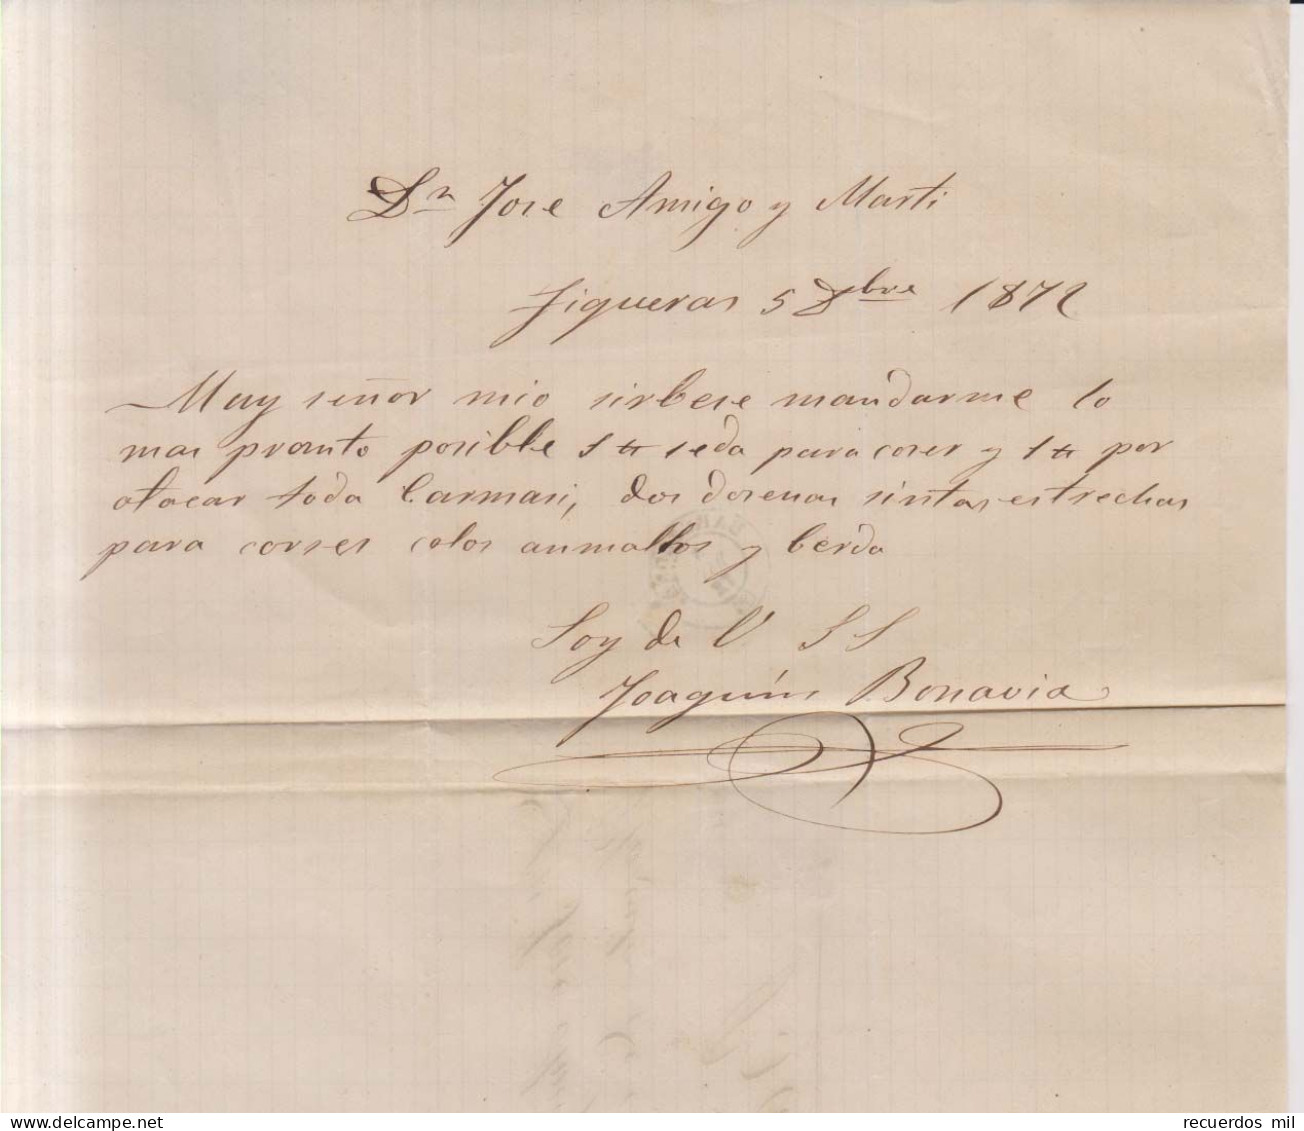 Dn Jose Amigo y Marti
Figueras 5 Dbre 1872
Muy señor mio sirbese mandarme lo
mas pronto posible 1 ℔ seda para coser y 1 ℔ por
atacar toda Carmasi, dos dosenas sintas estrechas
para corses colos anmallos y berda
Soy de V. S S
Joaquin Bonavia
recuerdos mil